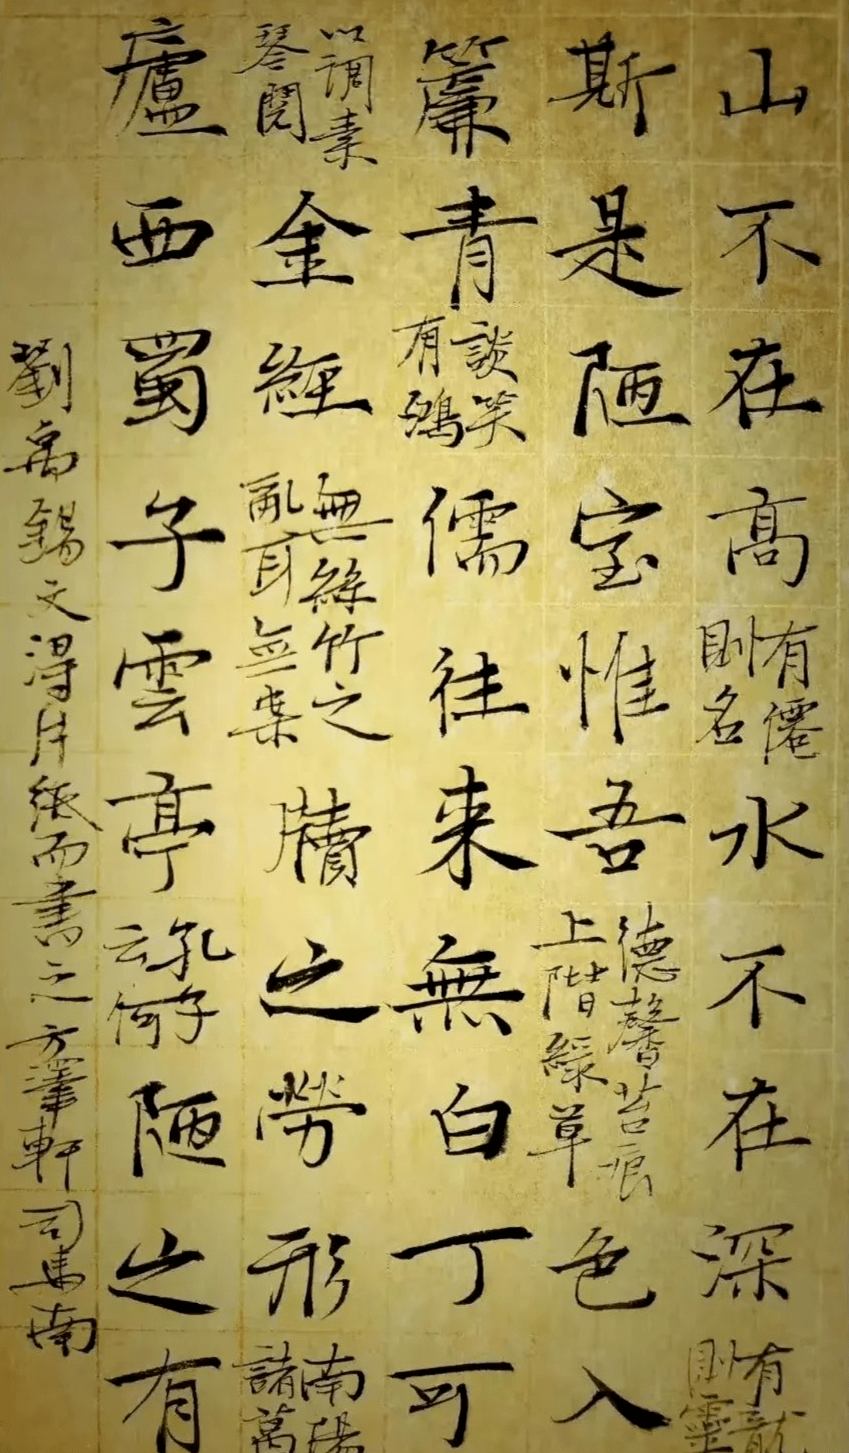 山不在高有僊則名水不在深有龍則靈
斯是陋室惟吾德馨苔痕上階綠草色入
簾青談笑有鴻儒往来無白丁可
以調素琴閱金經無絲竹之亂耳無案牘之勞形南陽諸葛
廬西蜀子雲亭孔子云何陋之有
劉禹錫文得片紙而書之方澤軒司馬南